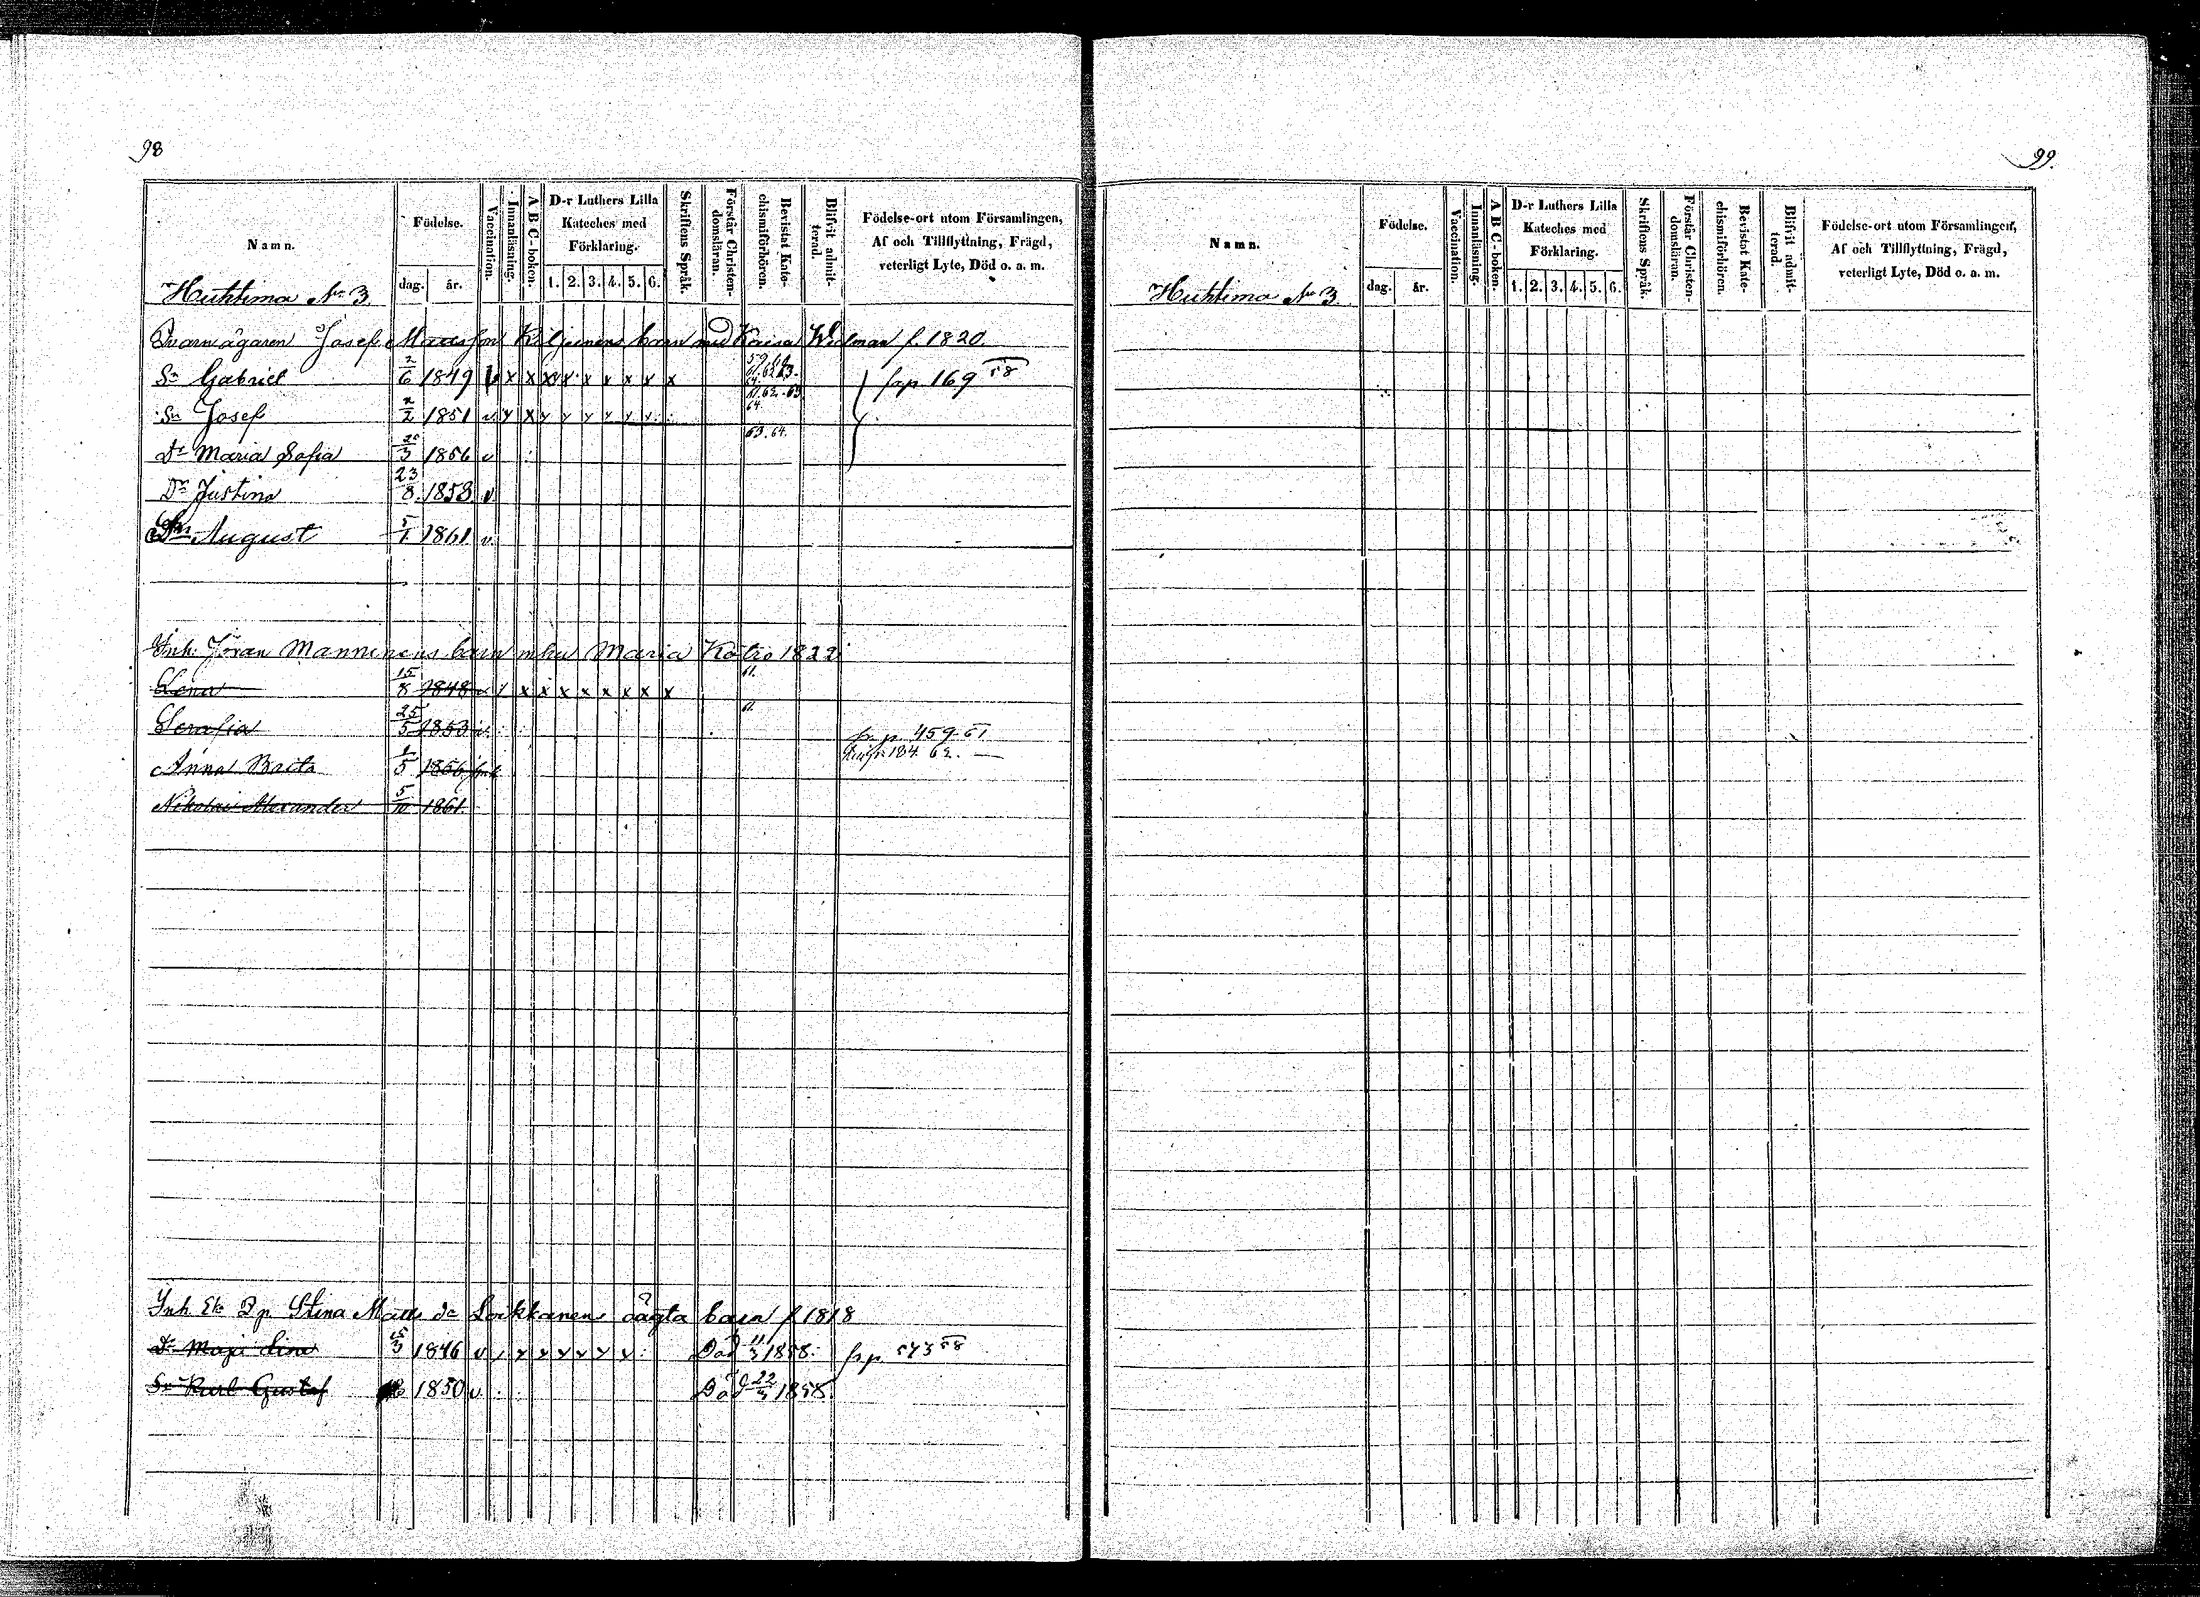 98
Namn.
Födelse.
dag. år.
Vaccination.
Innanläsning.
A B C-boken.
D-r Luthers Lilla
Kateches med
Förklaring.
1. 2. 3. 4. 5. 6.
Skriftens Språk.
Förstår Christen-
domsläran.
Bevistat Kate-
chismiförhören.
Blifvit admit-
terad.
Födelse-ort utom Församlingen,
Af och Tillflyttning, Frägd,
veterligt Lyte, Död o. a. m.
Huhtima No 3
Qvarnägaren Josef Matsson Kiljunens barn med Kaisa f. 1820.
Sn Gabriel 2/6 1849 x x x x x x x x frp 169 58
Sn Josef 2/2 1851 v y x y y y y y y 64.
63. 64.
Dr Maria Sofia 1856 v
Dr Justina 23/8 1858 v
Sn August 5/1 1861 v.
Inh. Jöran Manninens barn m hu Maria 1822
61.
Lena 15/8 1848 x x x x x x x x
61.
Serafia 25/5 1853 v. fr p. 459 61
184 62.
Anna Brita 1/5 1856
Nikolai Alexander 5/10 1861.
Inh. Stina Matts dr Loikkanens oägta barn f 1818
Dr Maja Lina 1846 v y y y y y y Död 11/3 1858. frp. 573 58
Sn Karl Gustaf 1850 v Död 22/3 1858.
99.
Namn.
Födelse.
dag. år.
Vaccination.
Innanläsning.
A B C-boken.
D-r Luthers Lilla
Kateches med
Förklaring.
1. 2. 3. 4. 5. 6.
Skriftens Språk.
Förstår Christen-
domsläran.
Bevistat Kate-
chismiförhören.
Blifvit admit-
terad.
Födelse-ort utom Församlingen,
Af och Tillflyttning, Frägd,
veterligt Lyte, Död o. a. m.
Huhtima No 3.